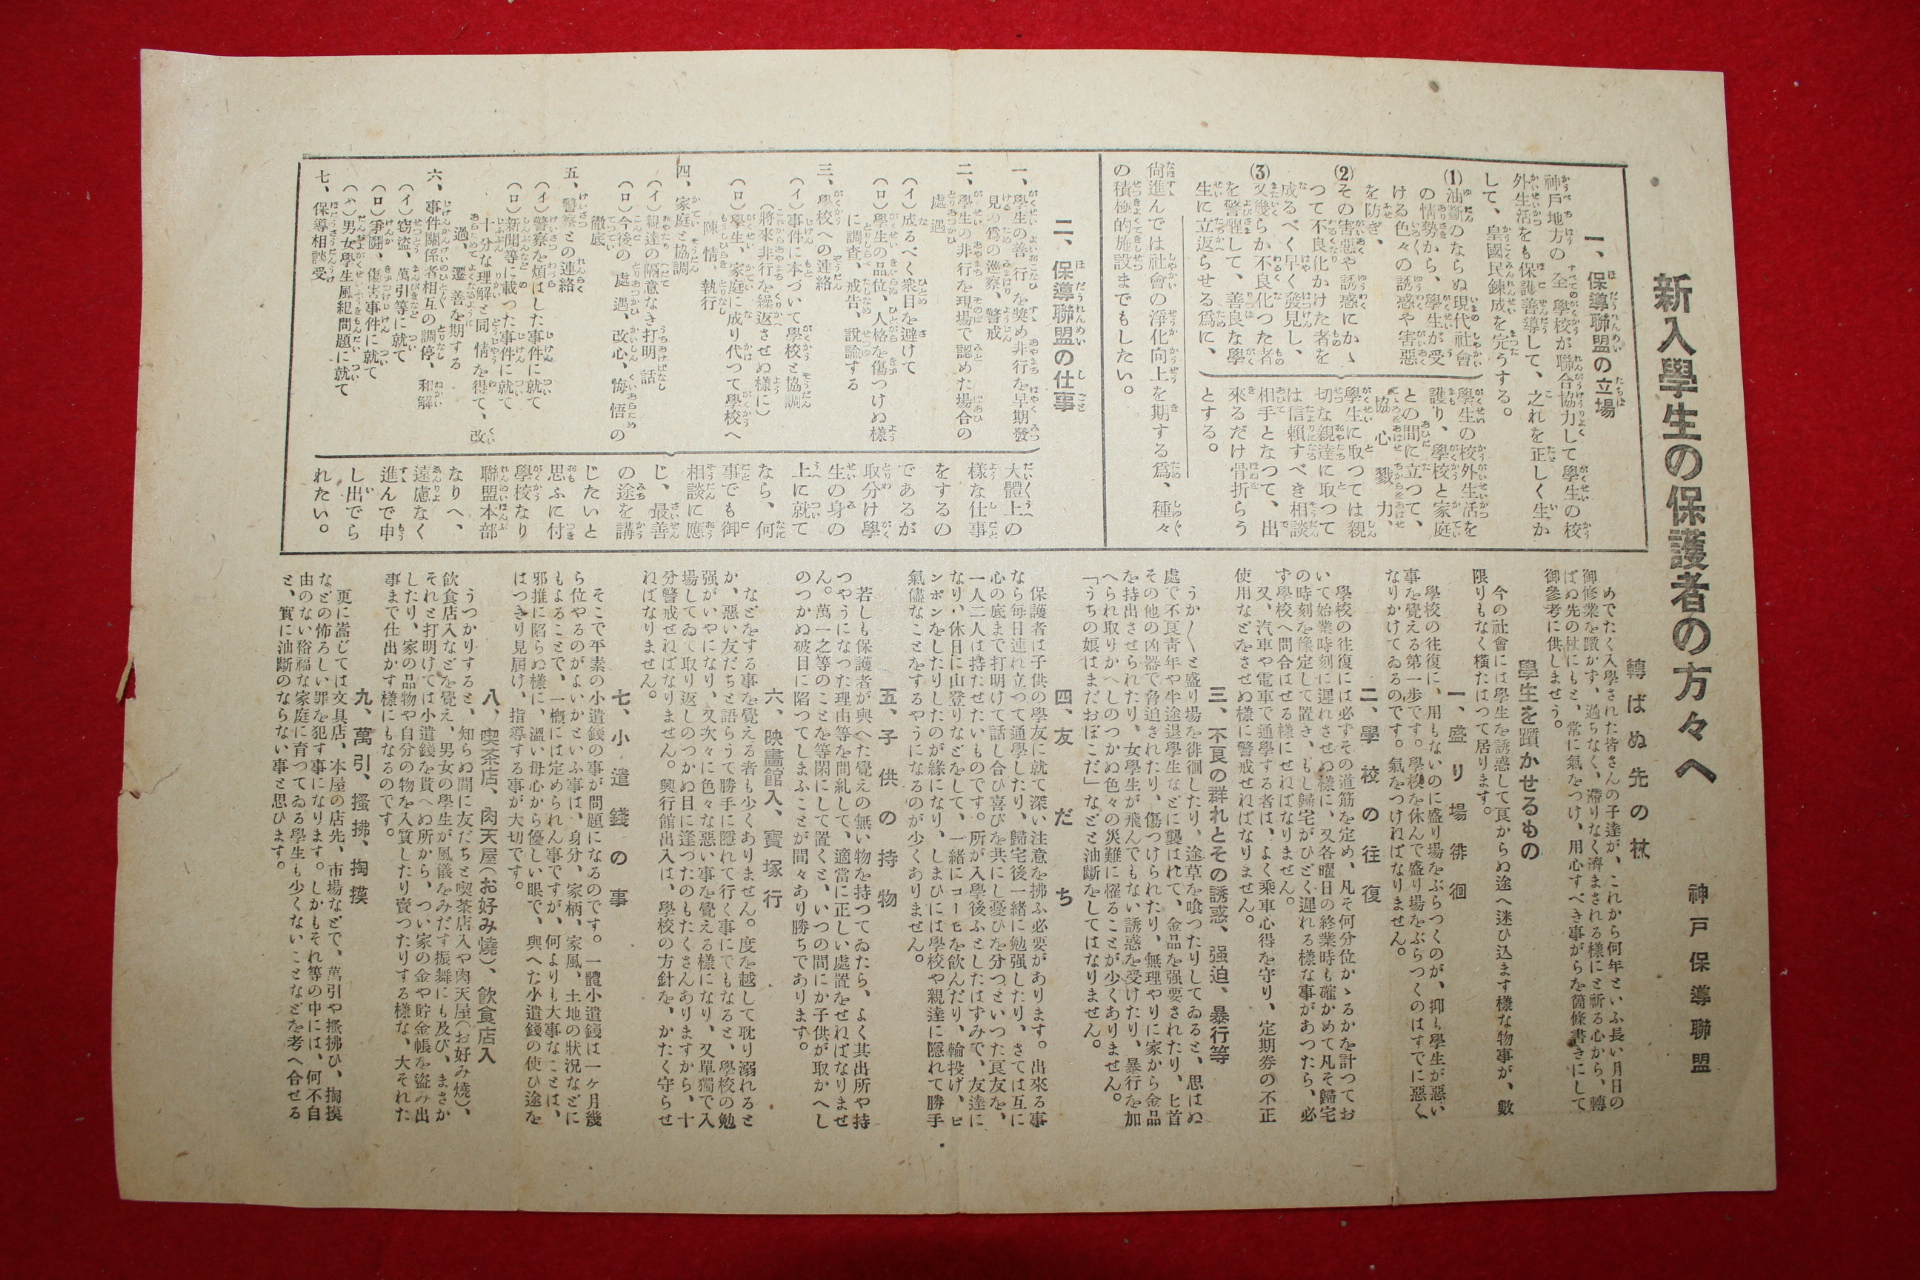 新入學生の保護者の方々へ
神戸保導聯盟
一、保導聯盟の立場
神戸地方の全學校が聯合協力して學生の校
外生活をも保護善導して、之れを正しく生か
して、皇國民錬成を完うする。
(1)油斷のならぬ現代社會
の情勢から、學生が受
ける色々の誘惑や害惡
を防ぎ、
(2)その害惡や誘惑にかゝ
つて不良化かけた者を
成るべく早く發見し、
(3)又幾らか不良化つた者
を警醒して、善良な學
生に立返らせる爲に、
學生の校外生活を
護り、學校と家庭
との間に立つて、
協心戮力、
學生に取つては親
切な親達に取つて
は信賴すべき相談
相手となつて、出
來るだけ骨折らう
とする。
尙進んでは社會の淨化向上を期する爲、種々
の積極的施設までもしたい。
二、保導聯盟の仕事
一、學生の善行を奬め非行を早期發
見の爲の漁察、警戒
二、學生の非行を現場で認めた場合の
處遇
(イ)成るべく衆目を避けて
(ロ)學生の品位、人格を傷つけぬ樣
に調査、戒告、說諭する
三、學校への連絡
(イ)事件に本づいて學校と協調
(將來非行を繰返させぬ樣に)
(ロ)學生、家庭に成り代つて學校へ
陳情、執行
四、家庭と協調
(イ)親達の隔意なき打明話
(ロ)今後の處遇、改心、悔悟の
徹底
五、警察との連絡
(イ)警察を煩はした事件に就て
(ロ)新聞等に載つた事件に就て
十分な理解と同情を得て、改
過、遷善を期する
六、事件關係者相互の調停、和解
(イ)窃盜、萬引等に就て
(ロ)爭鬪、傷害事件に就て
(ハ)男女學生風紀問題に就て
七、保導相談受
大體上の
樣な仕事
をするの
であるが
取分け學
生の身の
上に就て
なら、何
事でも御
相談に應
じ、最善
の途を講
じたいと
思ふに付
學校なり
聯盟本部
なりへ、
遠慮なく
進んで申
し出でら
れたい。
轉ばぬ先の杖
めでたく入學された皆さんの子達が、これから何年といふ長い月日の
御修業を躓かず、過らなく、滯りなく濟まされる樣にと祈る心から、轉
ばぬ先の杖にもと、常に氣をつけ、用心すべき事がらを箇條書きにして
御參考に供しませう。
學生を躓かせるもの
今の社會には學生を誘惑して良からぬ途へ迷ひ込ます樣な物事が、數
限りもなく橫たはつて居ります。
一、盛り場徘徊
學校の往復に、用もないのに盛り場をぶらつくのが、抑も學生が惡い
事を覺える第一歩です。學校を休んで盛り場をぶらつくのはすでに惡く
なりかけてゐるのです。氣をつけねばなりません。
二、學校の往復
學校の往復には必ずその道筋を定め、凡そ何分位かゝるかを計つてお
いて始業時刻に遲れさせぬ樣に、又各曜日の終業時も確かめて凡そ歸宅
の時刻を豫定して置き、もし歸宅がひどく遲れる樣な事があつたら、必
ず學校へ問合はせる樣にせねばなりません。
又、汽車や電車で通學する者は、よく乘車心得を守り、定期券の不正
使用などをさせぬ樣に警戒せねばなりません。
三、不良の群れとその誘惑、强迫、暴行等
うか〱と盛り場を徘徊したり、途草を喰つたりしてゐると、思はぬ
處で不良靑年や半途退學生などに襲はれて、金品を强要されたり、匕首
その他の凶器で脅迫されたり、傷つけられたり、無理やりに家から金品
を持出させられたり、女學生が飛んでもない誘惑を受けたり、暴行を加
へられ取りかへしのつかぬ色々の災難に懼ることが少くありません。
「うちの娘はまだおぼこだ」などと油斷をしてはなりません。
四、友だち
保護者は子供の學友に就て深い注意を拂ふ必要があります。出來る事
なら每日連れ立つて通學したり、歸宅後一緖に勉强したり、さては互に
心の底まで打明けて話し合ひ喜びを共にし憂ひを分つといつた良友を、
一人二人は持たせたいものです。所が入學後ふとしたはずみで、友達に
なり、休日に山登りなどをして、一緖にコーヒを飮んだり、輪投げ、ピ
ンポンをしたりしたのが緣になり、しまひには學校や親達に隱れて勝手
氣儘なことをするやうになるのが少くありません。
五、子供の持物
若しも保護者が與へた覺えの無い物を持つてゐたら、よく其出所や持
つやうになつた理由等を問糺して、適當に正しい處置をせねばなりませ
ん。萬一之等のことを等閑にして置くと、いつの間にか子供が取かへし
のつかぬ破目に陷つてしまふことが間々あり勝ちであります。
六、映畫館入、寶塚行
などをする事を覺える者も少くありません。度を越して耽り溺れると
か、惡い友だちと語らうて勝手に隱れて行く事にでもなると、學校の勉
强がいやになり、又次々に色々な惡い事を覺える樣になり、又單獨で入
場してゐて取り返しのつかぬ目に逢つたのもたくさんありますから、十
分警戒せねばなりません。興行館出入は、學校の方針を、かたく守らせ
ねばなりません。
七、小遣錢の事
そこで平素の小遣錢の事が問題になるのです。一體小遣錢は一ケ月幾
ら位やるのがよいかといふ事は、身分、家柄、家風、土地の狀況などに
もよることで、一槪には定められん事ですが、何よりも大事なことは、
邪推に陷らぬ樣に、溫い母心から優しい眼で、與へた小遣錢の使ひ途を
はつきり見屆け、指導する事が大切です。
八、喫茶店、肉天屋(お好み燒)、飮食店入
うつかりすると、知らぬ間に友だちと喫茶店入や肉天屋(お好み燒)、
飮食店入などを覺え、男女の學生が風儀をみだす振舞にも及び、まさか
それと打明けては小遣錢を貰へぬ所から、つい家の金や貯金帳を盜み出
したり、家の品物や自分の物を入質したり賣つたりする樣な、大それた
事まで仕出かす樣にもなるのです。
九、萬引、搔拂、掏摸
更に嵩じては文具店、本屋の店先、市場などで、萬引や搔拂ひ、掏摸
などの怖ろしい罪を犯す事になります。しかもそれ等の中には、何不自
由のない裕福な家庭に育つてゐる學生も少くないことなどを考へ合せる
と、實に油斷のならない事と思ひます。